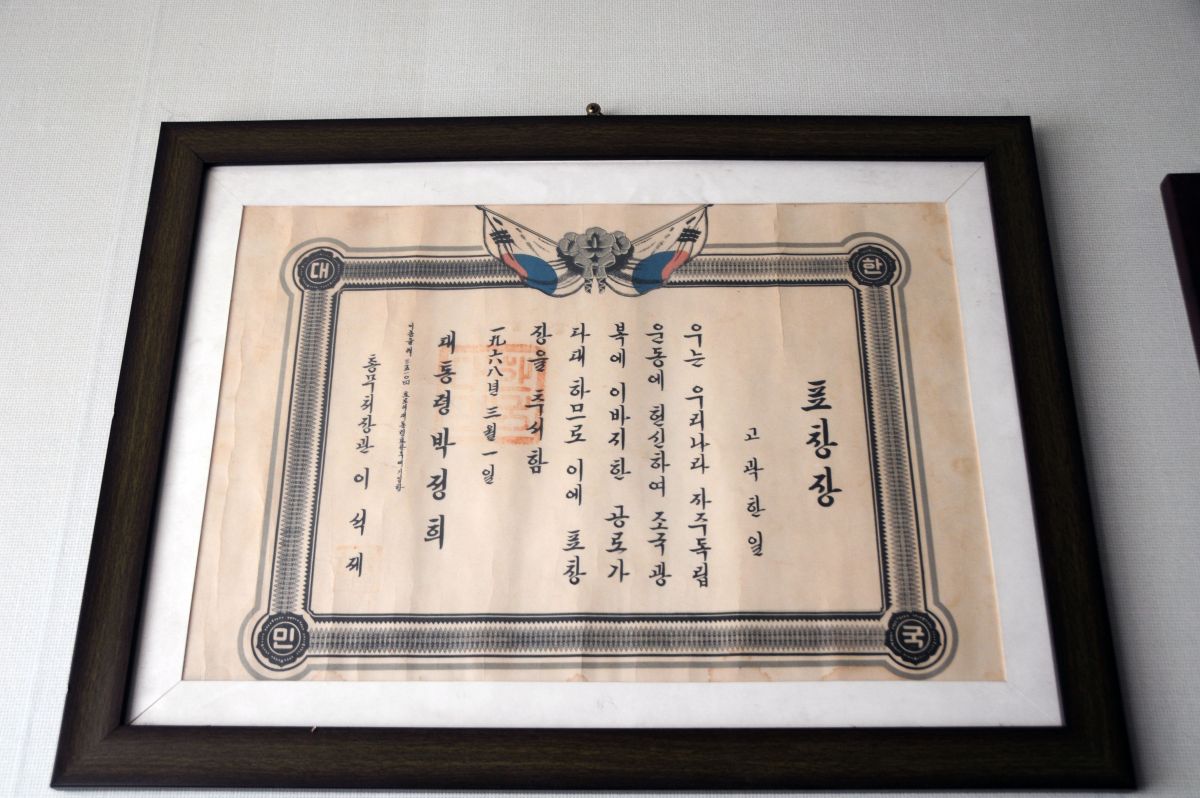 대
한
민
국
표창장
고 곽한일
우는 우리나라 자주독립
운동에 헌신하여 조국광
복에 이바지한 공로가
다대하므로 이에 표창
장을 추서함
一九六八년 三월 一일
대통령 박정희
총무처장관 이석제